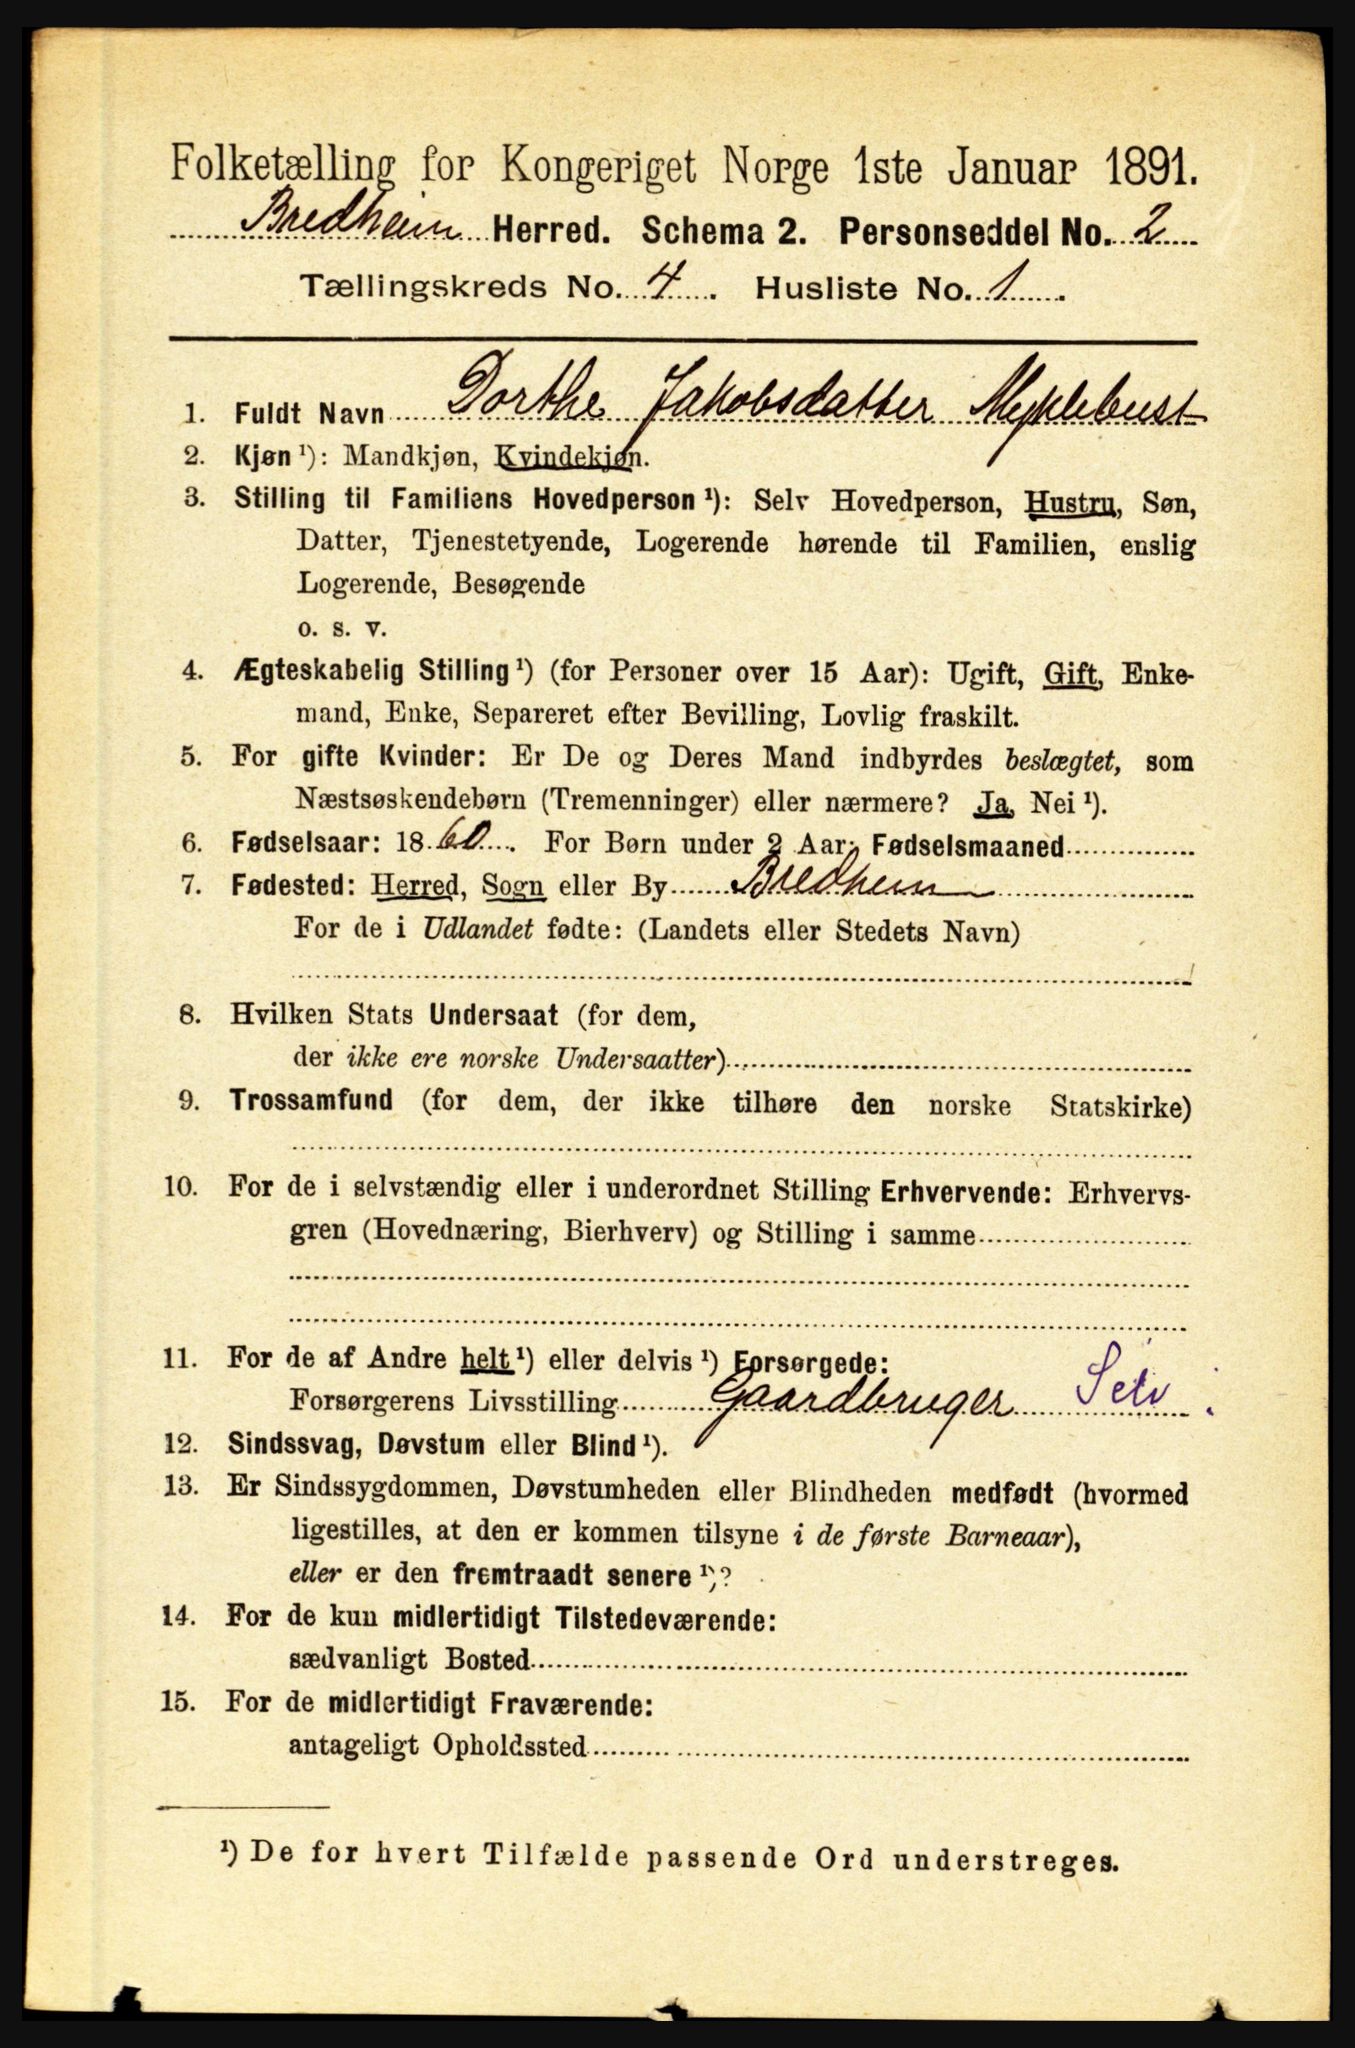 Folketælling for Kongeriget Norge 1ste Januar 1891.
Bredheim Herred. Schema 2. Personseddel No. 2
Tællingskreds No. 4. Husliste No. 1.
1. Fuldt Navn Dorthe Jakobsdatter Myklebust
2. Kjøn ¹): Mandkjøn, Kvindekjøn.
3. Stilling til Familiens Hovedperson ¹): Selv Hovedperson, Hustru, Søn,
Datter, Tjenestetyende, Logerende hørende til Familien, enslig
Logerende, Besøgende
o. s. v.
4. Ægteskabelig Stilling ¹) (for Personer over 15 Aar): Ugift, Gift, Enke-
mand, Enke, Separeret efter Bevilling, Lovlig fraskilt.
5. For gifte Kvinder: Er De og Deres Mand indbyrdes beslægtet, som
Næstsøskendebørn (Tremenninger) eller nærmere? Ja, Nei ¹).
6. Fødselsaar: 1860. For Børn under 2 Aar: Fødselsmaaned
7. Fødested: Herred, Sogn eller By Bredheim
For de i Udlandet fødte: (Landets eller Stedets Navn)
8. Hvilken Stats Undersaat (for dem,
der ikke ere norske Undersaatter)
9. Trossamfund (for dem, der ikke tilhøre den norske Statskirke)
10. For de i selvstændig eller i underordnet Stilling Erhvervende: Erhvervs-
gren (Hovednæring, Bierhverv) og Stilling i samme
11. For de af Andre helt ¹) eller delvis ¹) Forsørgede:
Forsørgerens Livsstilling Gaardbruger Selv.
12. Sindssvag, Døvstum eller Blind ¹).
13. Er Sindssygdommen, Døvstumheden eller Blindheden medfødt (hvormed
ligestilles, at den er kommen tilsyne i de første Barneaar),
eller er den fremtraadt senere ¹)?
14. For de kun midlertidigt Tilstedeværende:
sædvanligt Bosted
15. For de midlertidigt Fraværende:
antageligt Opholdssted
¹) De for hvert Tilfælde passende Ord understreges.